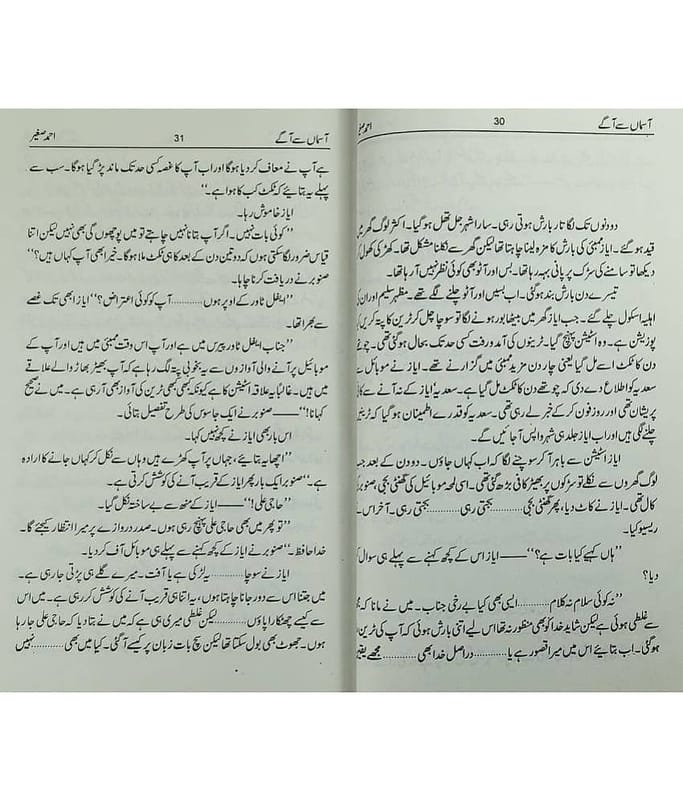 آسماں سے آگے
30
احمد صغیر
دو دنوں تک لگاتار بارش ہوتی رہی۔ سارا شہر جل تھل ہو گیا۔ اکثر لوگ گھر میں
قید ہو گئے۔ ایاز ممبئی کی بارش کا مزہ لینا چاہتا تھا لیکن گھر سے نکلنا مشکل تھا۔ کھڑکی کھول
دیکھا تو سامنے کی سڑک پر پانی بہہ رہا تھا۔ بس اور آٹو بھی کوئی نظر نہیں آرہا تھا۔
تیسرے دن بارش بند ہو گئی۔ اب بسیں اور آٹو چلنے لگے تھے۔ مظہر سلیم اور ان
اہلیہ اسکول چلے گئے۔ جب ایاز گھر میں بیٹھا بور ہونے لگا تو سوچا چل کر ٹرین کا پتہ کریں
پوزیشن ہے۔ وہ اسٹیشن پہنچ گیا۔ ٹرینوں کی آمد و رفت کسی حد تک بحال ہو گئی تھی۔ چوتھے
دن کا ٹکٹ اسے مل گیا یعنی چار دن مزید ممبئی میں گزارنے تھے۔ ایاز نے موبائل سے
سعدیہ کو اطلاع دے دی کہ چوتھے دن کا ٹکٹ مل گیا ہے۔ سعدیہ ایاز کے نہ آنے سے کافی
پریشان تھی اور روز فون کر کے خبر لے رہی تھی۔ سعدیہ کو قدرے اطمینان ہو گیا کہ ٹرینیں
چلنے لگی ہیں اور اب ایاز جلد ہی شہر واپس آجائیں گے۔
ایاز اسٹیشن سے باہر آکر سوچنے لگا کہ اب کہاں جاؤں۔ دو دن کے بعد جب
لوگ گھروں سے نکلے تو سڑکوں پر بھیڑ کافی بڑھ گئی تھی۔ اسی لمحہ موبائل کی گھنٹی بجی، صنوبر کی
کال تھی۔ ایاز نے کاٹ دیا، پھر گھنٹی بجی............ بجتی رہی............ بجتی رہی۔ آخر اس نے
ریسیو کیا۔
”ہاں کہیے کیا بات ہے؟“ —— ایاز اس کے کچھ کہنے سے پہلے ہی سوال
دیا؟
”نہ کوئی سلام نہ کلام............ ایسی بھی کیا بے رخی جناب۔ میں نے مانا کہ مجھ
سے غلطی ہوئی ہے لیکن شاید خدا کو بھی منظور نہ تھا اس لیے اتنی بارش ہوئی کہ آپ کی ٹرین
ہو گئی۔ اب بتائیے اس میں میرا قصور ہے یا............ دراصل خدا بھی............ مجھے یقین
آسماں سے آگے
31
احمد صغیر
ہے آپ نے معاف کر دیا ہوگا اور اب آپ کا غصہ کسی حد تک ماند پڑ گیا ہوگا۔ سب سے
پہلے یہ بتائیے کہ ٹکٹ کب کا ہوا ہے۔“
ایاز خاموش رہا۔
”کوئی بات نہیں۔ اگر آپ بتانا نہیں چاہتے تو میں پوچھوں گی بھی نہیں لیکن اتنا
قیاس ضرور لگا سکتی ہوں کہ دو تین دن کے بعد کا ہی ٹکٹ ملا ہوگا۔ خیر ابھی آپ کہاں ہیں؟“
صنوبر نے دریافت کرنا چاہا۔
”ایفل ٹاور کے اوپر ہوں............ آپ کو کوئی اعتراض؟“ ایاز ابھی تک غصے
سے بھرا تھا۔
”جناب ایفل ٹاور پیرس میں ہے اور آپ اس وقت ممبئی میں ہیں اور آپ کے
موبائل پر آنے والی آوازوں سے یہ بخوبی پتہ لگ رہا ہے کہ آپ بھیڑ بھاڑ والے علاقے
میں ہیں۔ غالباً یہ علاقہ اسٹیشن کا ہے کیونکہ کبھی کبھی ٹرین کی آواز بھی آرہی ہے۔ میں نے صحیح
کہا نا!“ —— صنوبر نے ایک جاسوس کی طرح تفصیل بتائی۔
اس بار بھی ایاز نے کچھ نہیں کہا۔
”اچھا یہ بتائیے، جہاں پر آپ کھڑے ہیں وہاں سے نکل کر کہاں جانے کا ارادہ
ہے۔“ صنوبر ایک بار پھر ایاز کے قریب آنے کی کوشش کرتی ہے۔
”حاجی علی!“ —— ایاز کے منھ سے بے ساختہ نکل گیا۔
”تو پھر میں بھی حاجی علی پہنچ رہی ہوں۔ صدر دروازے پر میرا انتظار کیجئے گا۔
خدا حافظ۔“ صنوبر نے ایاز کے کچھ کہنے سے پہلے ہی موبائل آف کر دیا۔
ایاز نے سوچا............ یہ لڑکی ہے یا آفت۔ میرے گلے ہی پڑتی جا رہی ہے۔
میں جتنا اس سے دور جانا چاہتا ہوں، یہ اتنا ہی قریب آنے کی کوشش کر رہی ہے۔ میں اس
سے کیسے چھٹکارا پاؤں............ لیکن غلطی میری ہی ہے کہ میں نے بتا دیا کہ حاجی علی جا رہا
ہوں۔ جھوٹ بھی بول سکتا تھا لیکن سچ بات زبان پر کیسے آگئی۔ کیا میں بھی............ نہیں